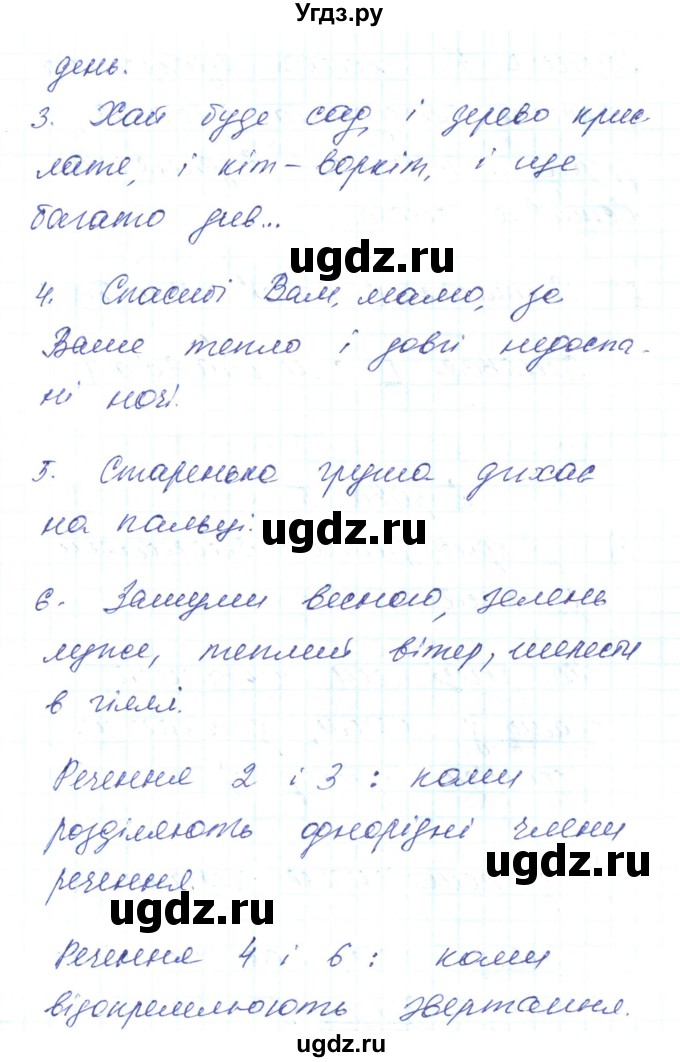 Угдз.ру
день.
3. Хай буде сад, і дерево крис-
лате, і кіт-воркіт, і ще
багато див...
ugdz.ru
4. Спасибі Вам, мамо, за
Ваше тепло і довгі недоспа-
ні ночі.
5. Старенька груша дихає
на пальці.
ugdz.ru
6. Зашуми весною, зелень
луже, теплий вітер, шелести
в гіллі.
Речення 2 і 3: коми
розділяють однорідні члени
речення.
ugdz.ru
ugdz.ru
Речення 4 і 6: коми
відокремлюють звертання.
ugdz.ru